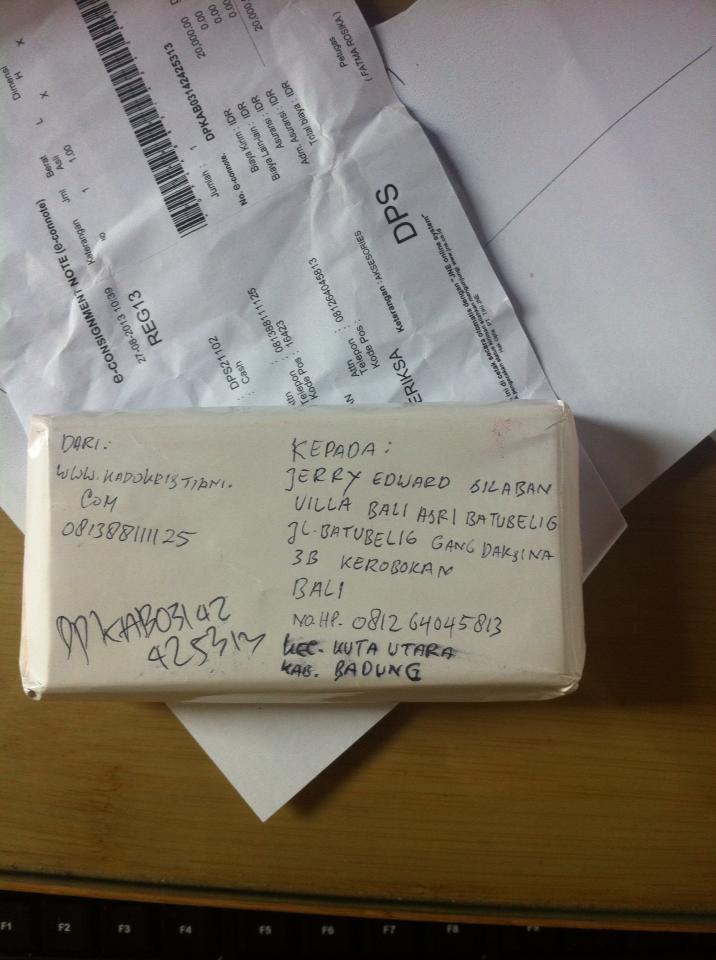 Dimensi
L X H X
Berat
Asli
1.00
Jml
1
Keterangan
no
e-CONSIGNMENT NOTE (e-connote)
27-08-2013 10:39
REG13
Jumlah : 1
No. e-connote. DPKAB0314242531 3
Biaya Kirim : IDR 20,000.00
Biaya Lain-lain : IDR 0.00
Asuransi : IDR 0.00
Adm. Asuransi : IDR
Total biaya : IDR 20,000
Petugas
( FATMA ROSIKA )
: DPS21102
Cash
Telepon : 08138811125
Kode Pos : 16423
Attn
Telepon : 081264045813
Kode Pos :
Keterangan : AKSESORIES
ERIKSA
DPS
ini di cetak secara otomatis dengan "JNE online system"
DARI:
WWW.KADOKRISTIANI.
COM
081388111125
DPKAB03142
425313
KEPADA:
JERRY EDWARD SILABAN
VILLA BALI ASRI BATUBELIG
JL. BATUBELIG GANG DAKSINA
3B KEROBOKAN
BALI
NO.HP. 081264045813
KEC. KUTA UTARA
KAB. BADUNG
F1 F2 F3 F4 F5 F6 F7 F8